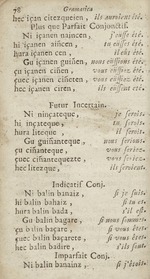 78 Gramatica
hec içan citezqueien, ils auroient été.
Plus que Parfait Conjonctif.
Ni içanen naincen, j'eusse été.
hi içanen aincen, tu eusses été.
hura içanen cen, il eût été.
Gu içanen guinen, nous eussions été.
çu içanen cinen, vous eussiez été.
çuec içanen cineten, vous eussiez été.
hec içanen ciren, ils eussent été.
Futur Incertain.
Ni ninçateque, je serois.
hi hinçateque, tu serois.
hura liteque, il seroit.
Gu guinanteque, nous serions.
çu cinanteque, vous seriez.
çuec cinantequete, vous seriez.
hec litezque, ils seroient.
Indicatif Conj.
Ni balin banaiz, si je suis.
hi balin bahaiz, si tu es.
hura balin bada, s'il est.
Gu balin bagare, si nous sommes.
çu balin baçare, si vous êtes.
çuec balin baçarete, si vous êtes.
hec balin badire, s'ils sont.
Imparfait Conj.
Ni balin baninz, si j'étois.